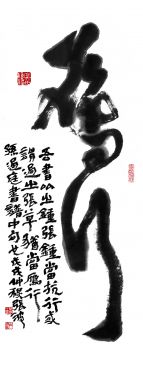 雁行
吾書比之鍾張鍾當抗行或
謂過之張草猶當雁行
孫過庭書譜中句也戊戌仲秋張